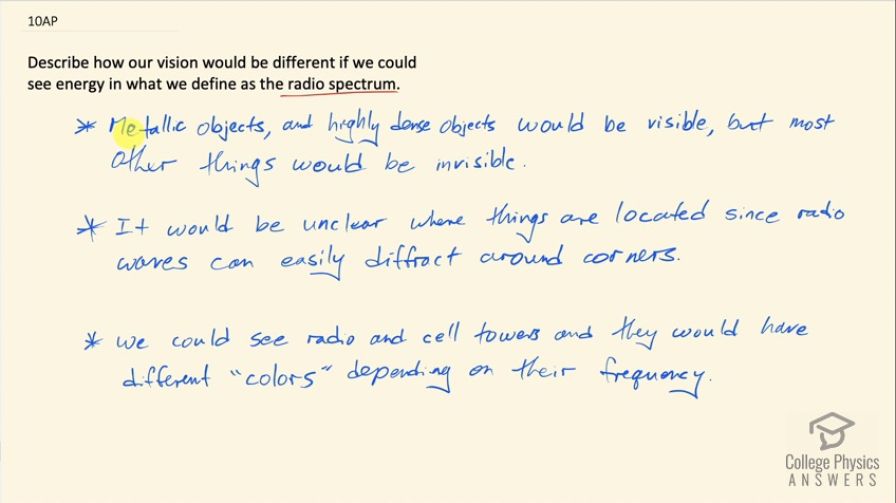 10AP
Describe how our vision would be different if we could
see energy in what we define as the radio spectrum.
* Metallic objects, and highly dense objects would be visible, but most
other things would be invisible.
* It would be unclear where things are located since radio
waves can easily diffract around corners.
* we could see radio and cell towers and they would have
different "colors" depending on their frequency.
College Physics
ANSWERS